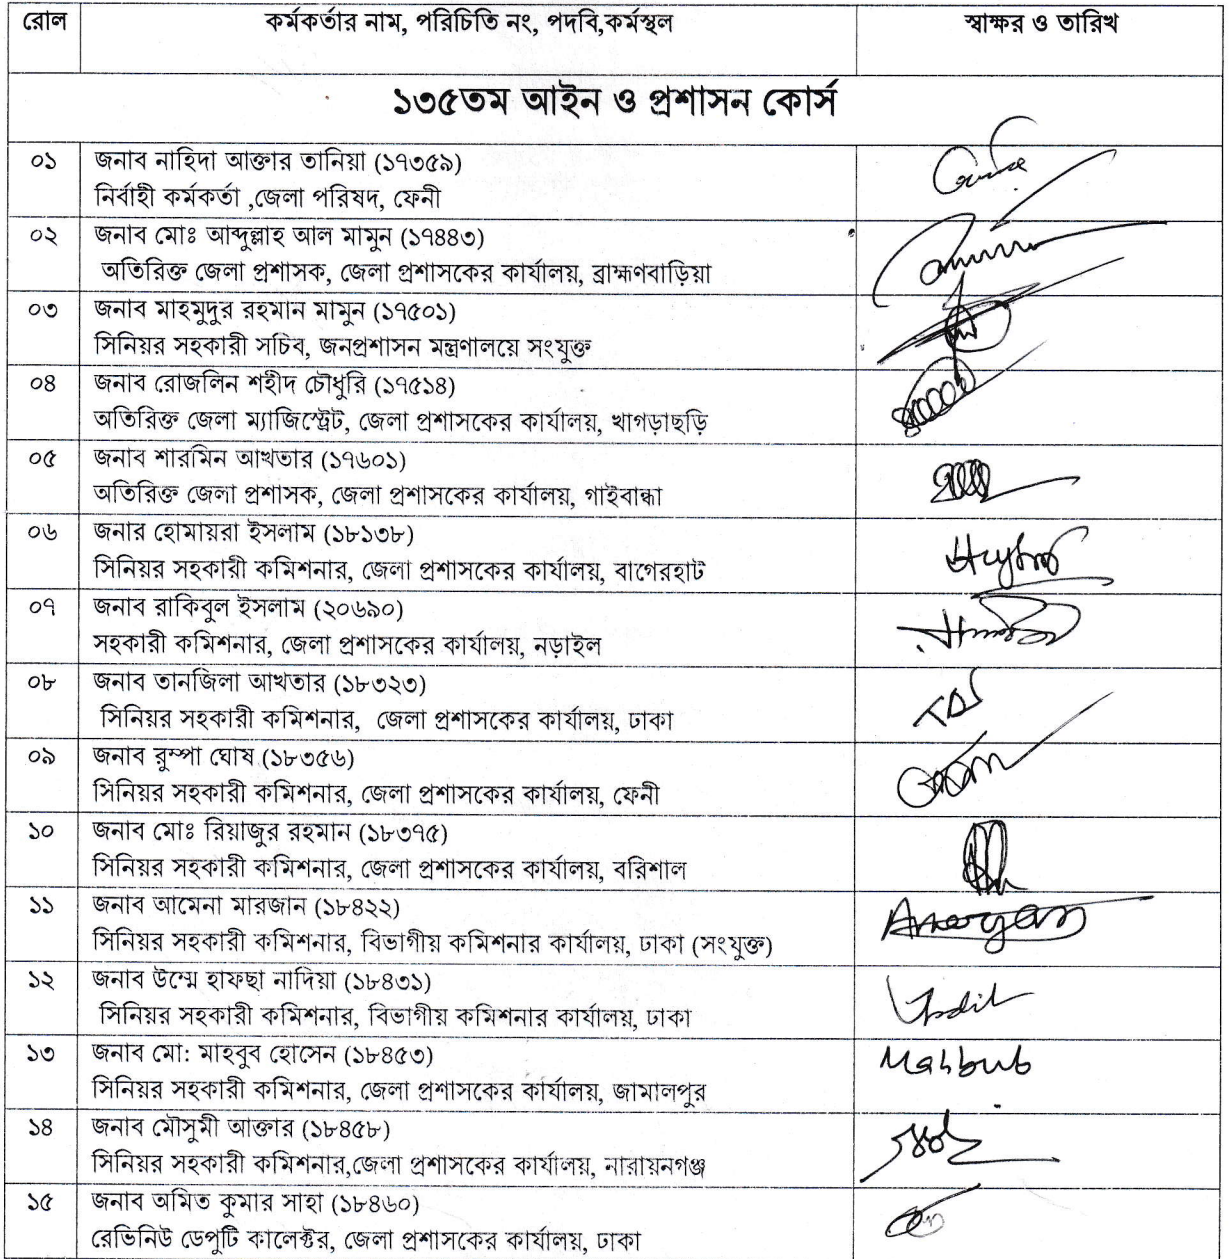 রোল কর্মকর্তার নাম, পরিচিতি নং, পদবি,কর্মস্থল স্বাক্ষর ও তারিখ
১৩৫তম আইন ও প্রশাসন কোর্স
০১ জনাব নাহিদা আক্তার তানিয়া (১৭৩৫৯)
নির্বাহী কর্মকর্তা ,জেলা পরিষদ, ফেনী
০২ জনাব মোঃ আব্দুল্লাহ আল মামুন (১৭৪৪৩)
অতিরিক্ত জেলা প্রশাসক, জেলা প্রশাসকের কার্যালয়, ব্রাহ্মণবাড়িয়া
০৩ জনাব মাহমুদুর রহমান মামুন (১৭৫০১)
সিনিয়র সহকারী সচিব, জনপ্রশাসন মন্ত্রণালয়ে সংযুক্ত
০৪ জনাব রোজলিন শহীদ চৌধুরি (১৭৫১৪)
অতিরিক্ত জেলা ম্যাজিস্ট্রেট, জেলা প্রশাসকের কার্যালয়, খাগড়াছড়ি
০৫ জনাব শারমিন আখতার (১৭৬০১)
অতিরিক্ত জেলা প্রশাসক, জেলা প্রশাসকের কার্যালয়, গাইবান্ধা
০৬ জনার হোমায়রা ইসলাম (১৮১৩৮)
সিনিয়র সহকারী কমিশনার, জেলা প্রশাসকের কার্যালয়, বাগেরহাট
০৭ জনাব রাকিবুল ইসলাম (২০৬৯০)
সহকারী কমিশনার, জেলা প্রশাসকের কার্যালয়, নড়াইল
০৮ জনাব তানজিলা আখতার (১৮৩২৩)
সিনিয়র সহকারী কমিশনার, জেলা প্রশাসকের কার্যালয়, ঢাকা
০৯ জনাব রুম্পা ঘোষ (১৮৩৫৬)
সিনিয়র সহকারী কমিশনার, জেলা প্রশাসকের কার্যালয়, ফেনী
১০ জনাব মোঃ রিয়াজুর রহমান (১৮৩৭৫)
সিনিয়র সহকারী কমিশনার, জেলা প্রশাসকের কার্যালয়, বরিশাল
১১ জনাব আমেনা মারজান (১৮৪২২)
সিনিয়র সহকারী কমিশনার, বিভাগীয় কমিশনার কার্যালয়, ঢাকা (সংযুক্ত)
১২ জনাব উম্মে হাফছা নাদিয়া (১৮৪৩১)
সিনিয়র সহকারী কমিশনার, বিভাগীয় কমিশনার কার্যালয়, ঢাকা
১৩ জনাব মো: মাহবুব হোসেন (১৮৪৫৩) Mahbub
সিনিয়র সহকারী কমিশনার, জেলা প্রশাসকের কার্যালয়, জামালপুর
১৪ জনাব মৌসুমী আক্তার (১৮৪৫৮)
সিনিয়র সহকারী কমিশনার,জেলা প্রশাসকের কার্যালয়, নারায়নগঞ্জ
১৫ জনাব অমিত কুমার সাহা (১৮৪৬০)
রেভিনিউ ডেপুটি কালেক্টর, জেলা প্রশাসকের কার্যালয়, ঢাকা